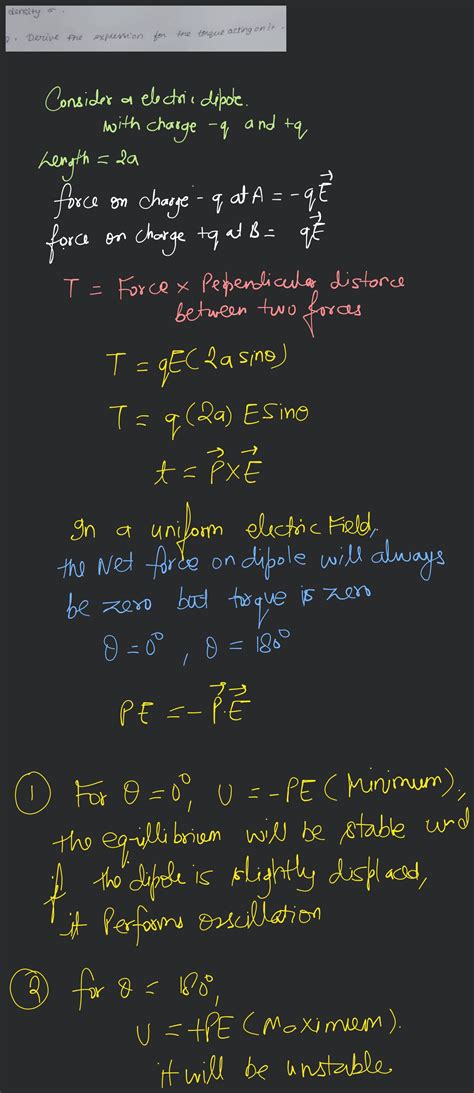 density σ.
2. Derive the expression for the torque acting on it.
Consider a electric dipole.
with charge -q and +q
Length = 2a
force on charge -q at A = -qE⃗
force on charge +q at B = qE⃗
T = Force × Perpendicular distance
between two forces
T = qE(2a sinθ)
T = q(2a) E Sinθ
t = P⃗×E⃗
In a uniform electric Field,
the Net force on dipole will always
be zero but torque is zero
θ = 0°, θ = 180°
PE = -P⃗.E⃗
① For θ = 0°, U = -PE (Minimum),
the equillibrium will be stable and
if the dipole is slightly displaced,
it Performs osscillation
② for θ = 180°,
U = +PE (Maximum).
it will be unstable